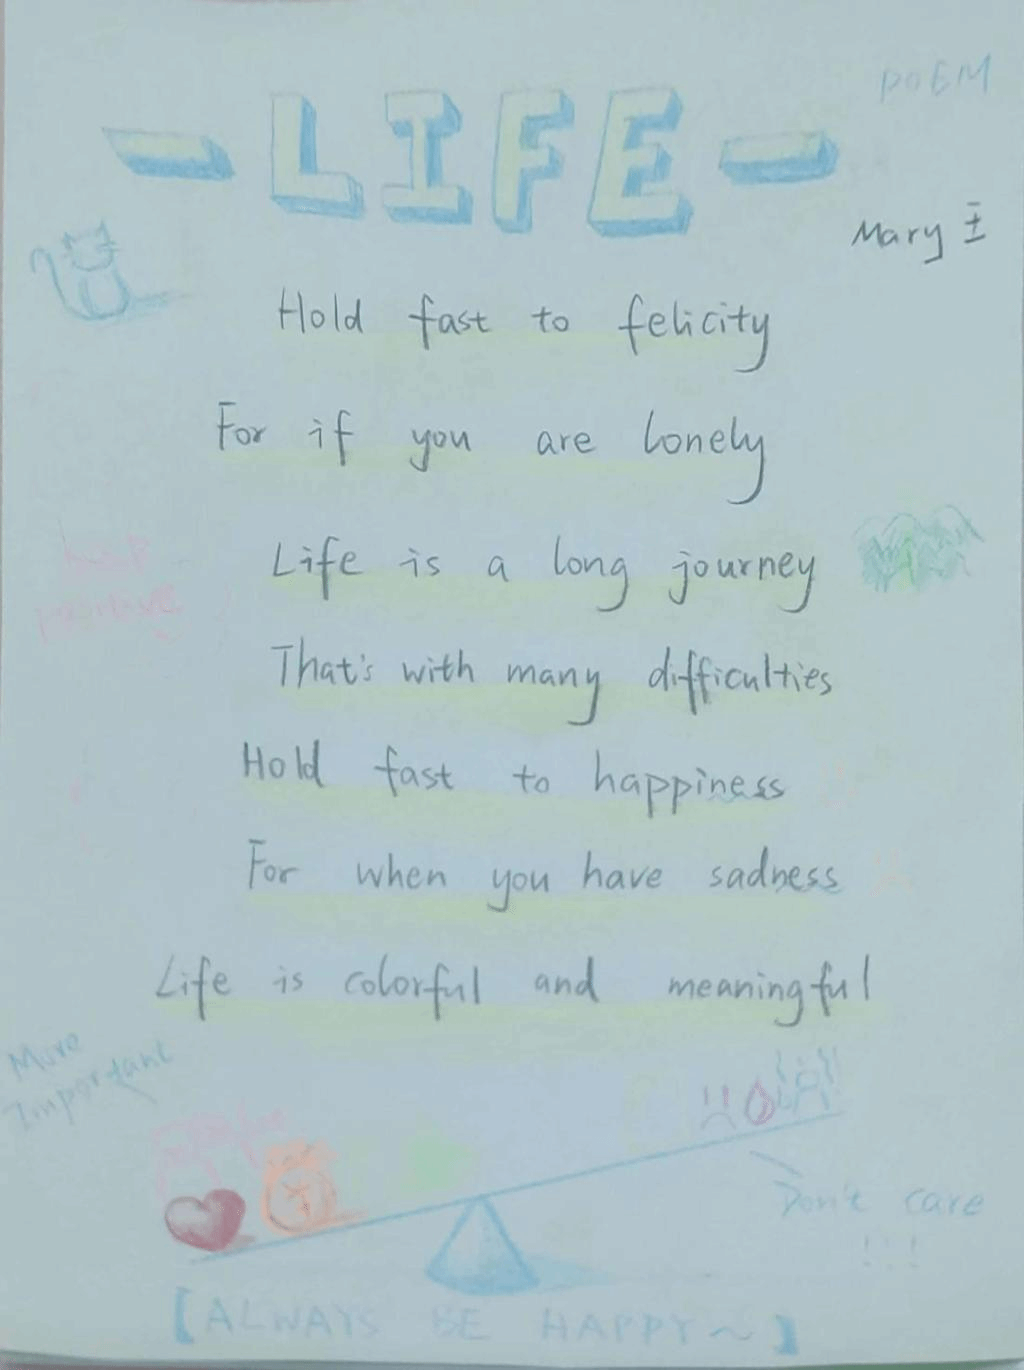 POEM
- LIFE -
Mary 王
Hold fast to felicity
For if you are lonely
Life is a long journey
keep
positive
That's with many difficulties
Hold fast to happiness
For when you have sadness
Life is colorful and meaningful
More
Important
Don't care
!!!
【ALWAYS BE HAPPY~】